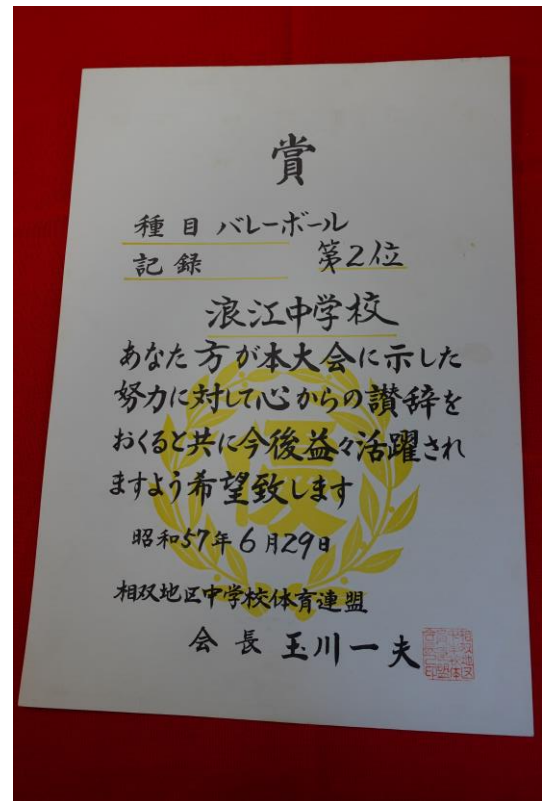 賞
種目 バレーボール
記録 第2位
浪江中学校
あなた方が本大会に示した
努力に対して心からの讃辞を
おくると共に今後益々活躍され
ますよう希望致します
優
昭和57年6月29日
相双地区中学校体育連盟
会長 玉川一夫